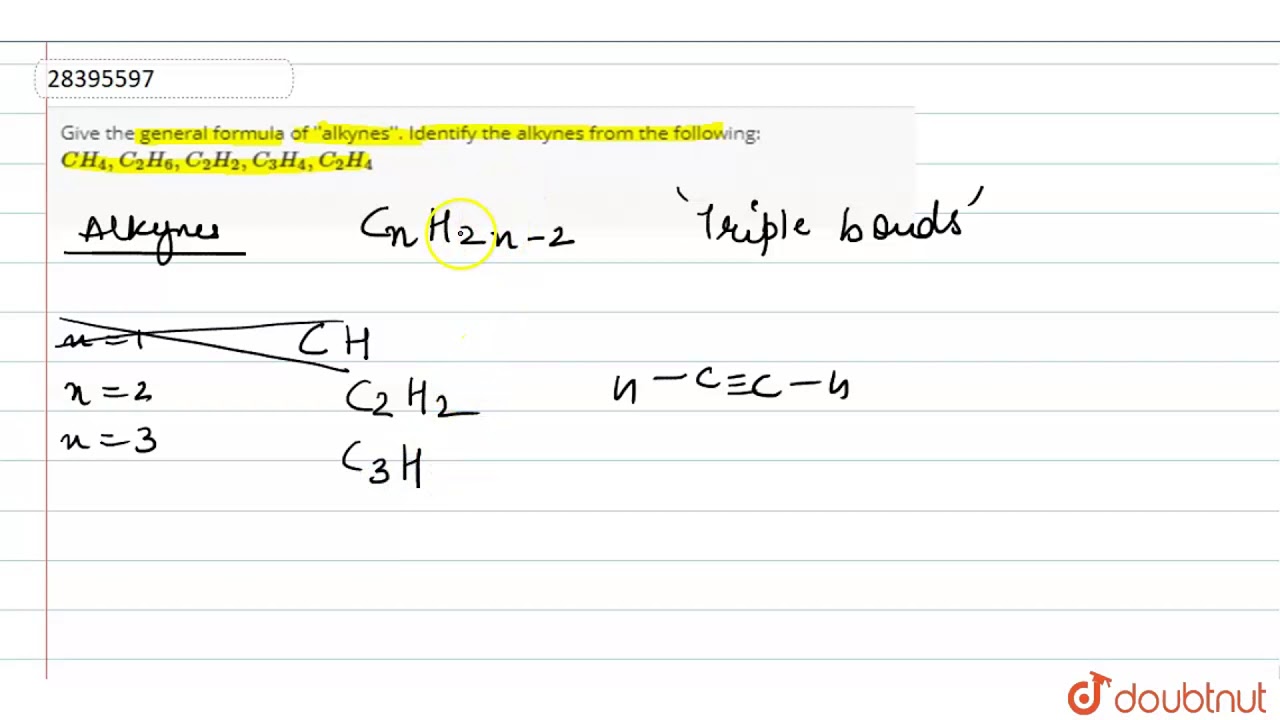 28395597
Give the general formula of "alkynes". Identify the alkynes from the following:
CH₄, C₂H₆, C₂H₂, C₃H₄, C₂H₄
Alkynes CₙH₂ₙ₋₂ 'Triple bonds'
n=1 CH
n=2 C₂H₂ H-C≡C-H
n=3 C₃H
doubtnut